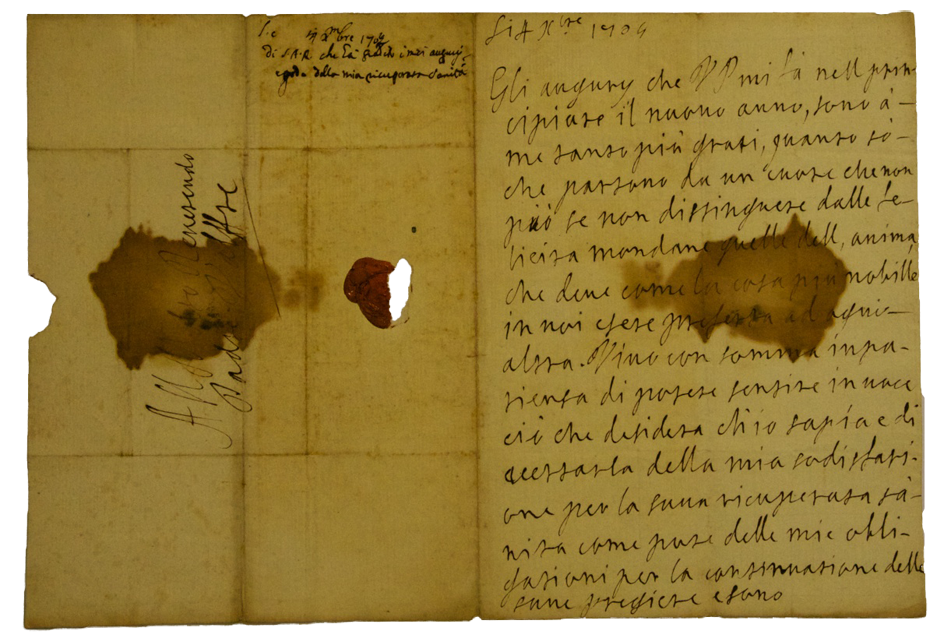 di S.A.R. che
della mia ricuperata sanità
Reverendo
Li 4 Xbre 1704
Gli augurij che VP mi fà nell prin-
cipiare il nuovo anno, sono à-
me tanto più grati, quanto sò-
che partono da un cuore che non
può se non distinguere dalle fe-
licità mondane quelle dell, anima
che deve come la cosa più nobille
in noi esere preferita ad ogni-
altra. Vivo con somma inpa-
tienza di potere sentire in voce
ciò che desidera ch'io sapia e di
accertarla della mia sodisfati-
one per la sua ricuperata sà-
nità come pure delle mie obli-
gationi per la continuatione delle
sue preghiere e sono